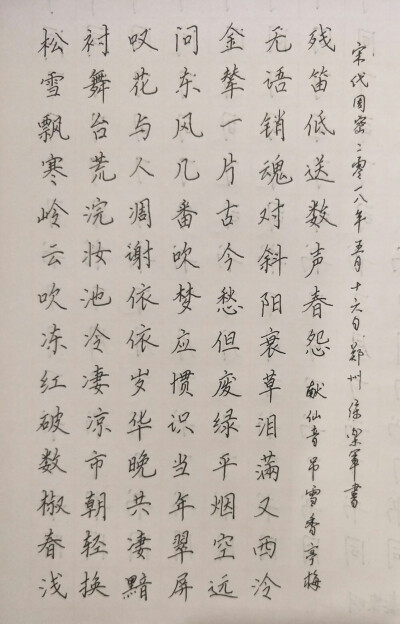 松雪飘寒岭云吹冻红破数椒春浅
衬舞台荒浣妆池冷凄凉市朝轻换
叹花与人凋谢依依岁华晚共凄黯
问东风几番吹梦应惯识当年翠屏
金辇一片古今愁但废绿平烟空远
无语销魂对斜阳衰草泪满又西泠
残笛低送数声春怨 献仙音吊雪香亭梅
宋代周密二零一八年五月十六日郑州军书